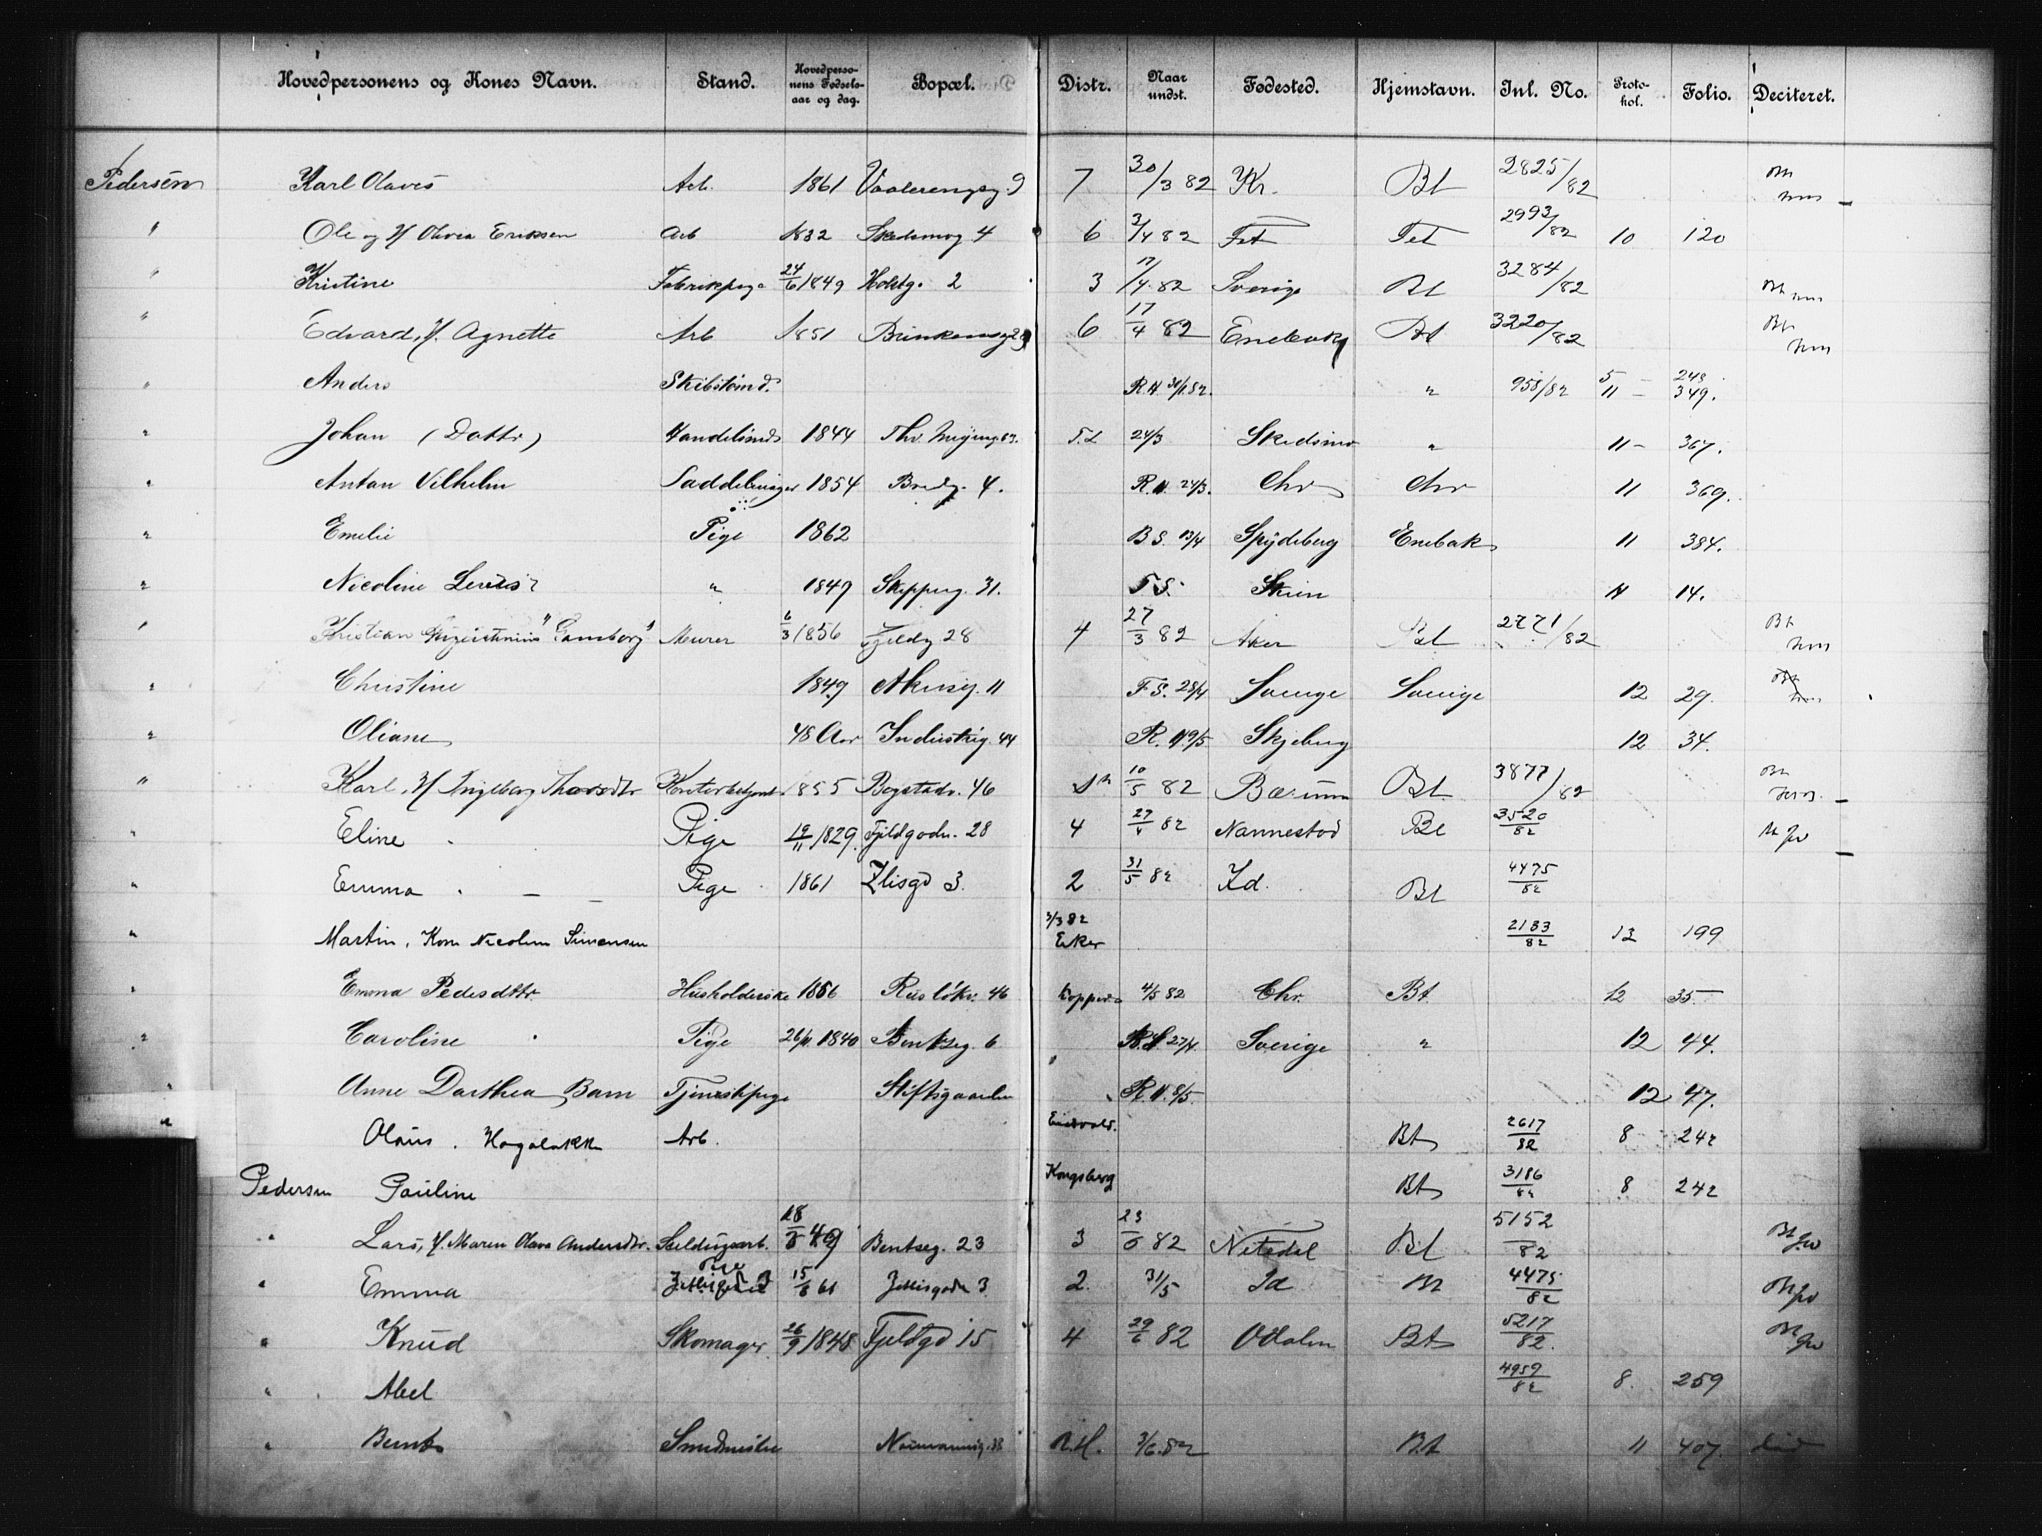 Hovedpersonens og Kones Navn. Stand. Hovedpersonens Fødselsaar og dag. Bopæl. Distr. Naar undst. Fødested. Hjemstavn. Inl. No. Protokol. Folio. Deciteret.
Pedersen Karl Olaves Arb. 1861 Vaalerengsg. 9 7 30/3 82 Kr. Bt 2825/82
" Ole og H Olivia Eriksen Arb 1832 Skedsmog 4 6 3/4 82 Fet Fet 2993/82 10 120
" Kristine Fabrikpige 24/6 1849 Holstg. 2 3 17/4 82 Sverige Bt 3284/82
" Edvard, H. Agnette Arb 1851 6 17/4 82 Enebak Bt 3220/82
" Anders 958/82 5 - 248. 11 - 349.
" Johan (Dattr) 1844 24/3 Skedsmo " 11 - 367.
" Anton Vilhelm Saddelmager 1854 Bredg. 4. R.N. 24/3. Chr Chr 11 369.
" Emilie Pige 1862 B S. 13/4 Spydeberg Enebak 11 384.
" Nicoline " 1849 Skipperg. 31. F.S. Skien 11 14.
" Kristian "Gamborg" Murer 6/3 1856 Fjeldg 28 4 27/3 82 Aker Bt 2771/82 Bt
" Christine 1849 Akersg. 11 F.S. 28/4 Sverige Sverige 12 29.
" Oliane 48 Aar Industrig. 44 R.N 9/5 Skjeberg 12 34.
" Karl, H Ingeborg Thorsdtr Kontorbetjent 1855 Bogstadv. 46 10/5 82 Bærum Bt. 3877/82
" Eline Pige 19/11 1829. Fjeldgadn. 28 4 27/4 82 Nannestad Bt 3520/82
" Emma Pige 1861 3. 2 31/5 82 Id. Bt 4475/82
" Martin, Kone Nicoline Simensen 3/3 82 Eker 2183/82 12 199
" Emma Pedersdttr Husholderske 1856 Rusløkv. 46 4/5 82 Chr. Bt. 12 35
" Caroline Pige 26/11 1840 Bentseg. 6 27/4. Sverige " 12 44.
" Anne Dorthea Barn Tjenestpige Stiftsgaarden R.N. 8/5. 12 47.
" Olaus. Hagaløkk Arb. Eidsvold. Bt 2617/82 8 242
Pedersen Pauline Kongsberg Bt 3186/82 8 242
" Lars, H. Maren Olava Andersdtr. 18/6 49 Bentseg. 23 3 23/6 82 Nitedal Bt 5152/82
" Emma Pige 15/6 61 3 2. 31/5 Id Bt 4475/82
" Knud Skomager 26/9 1848 Fjeldgd 15 4 29/6 82 Odalen Bt 5217/82.
" Abel 4959/82 8. 259
" Bernt Smedmester 3/6.82 Bt 11 407.